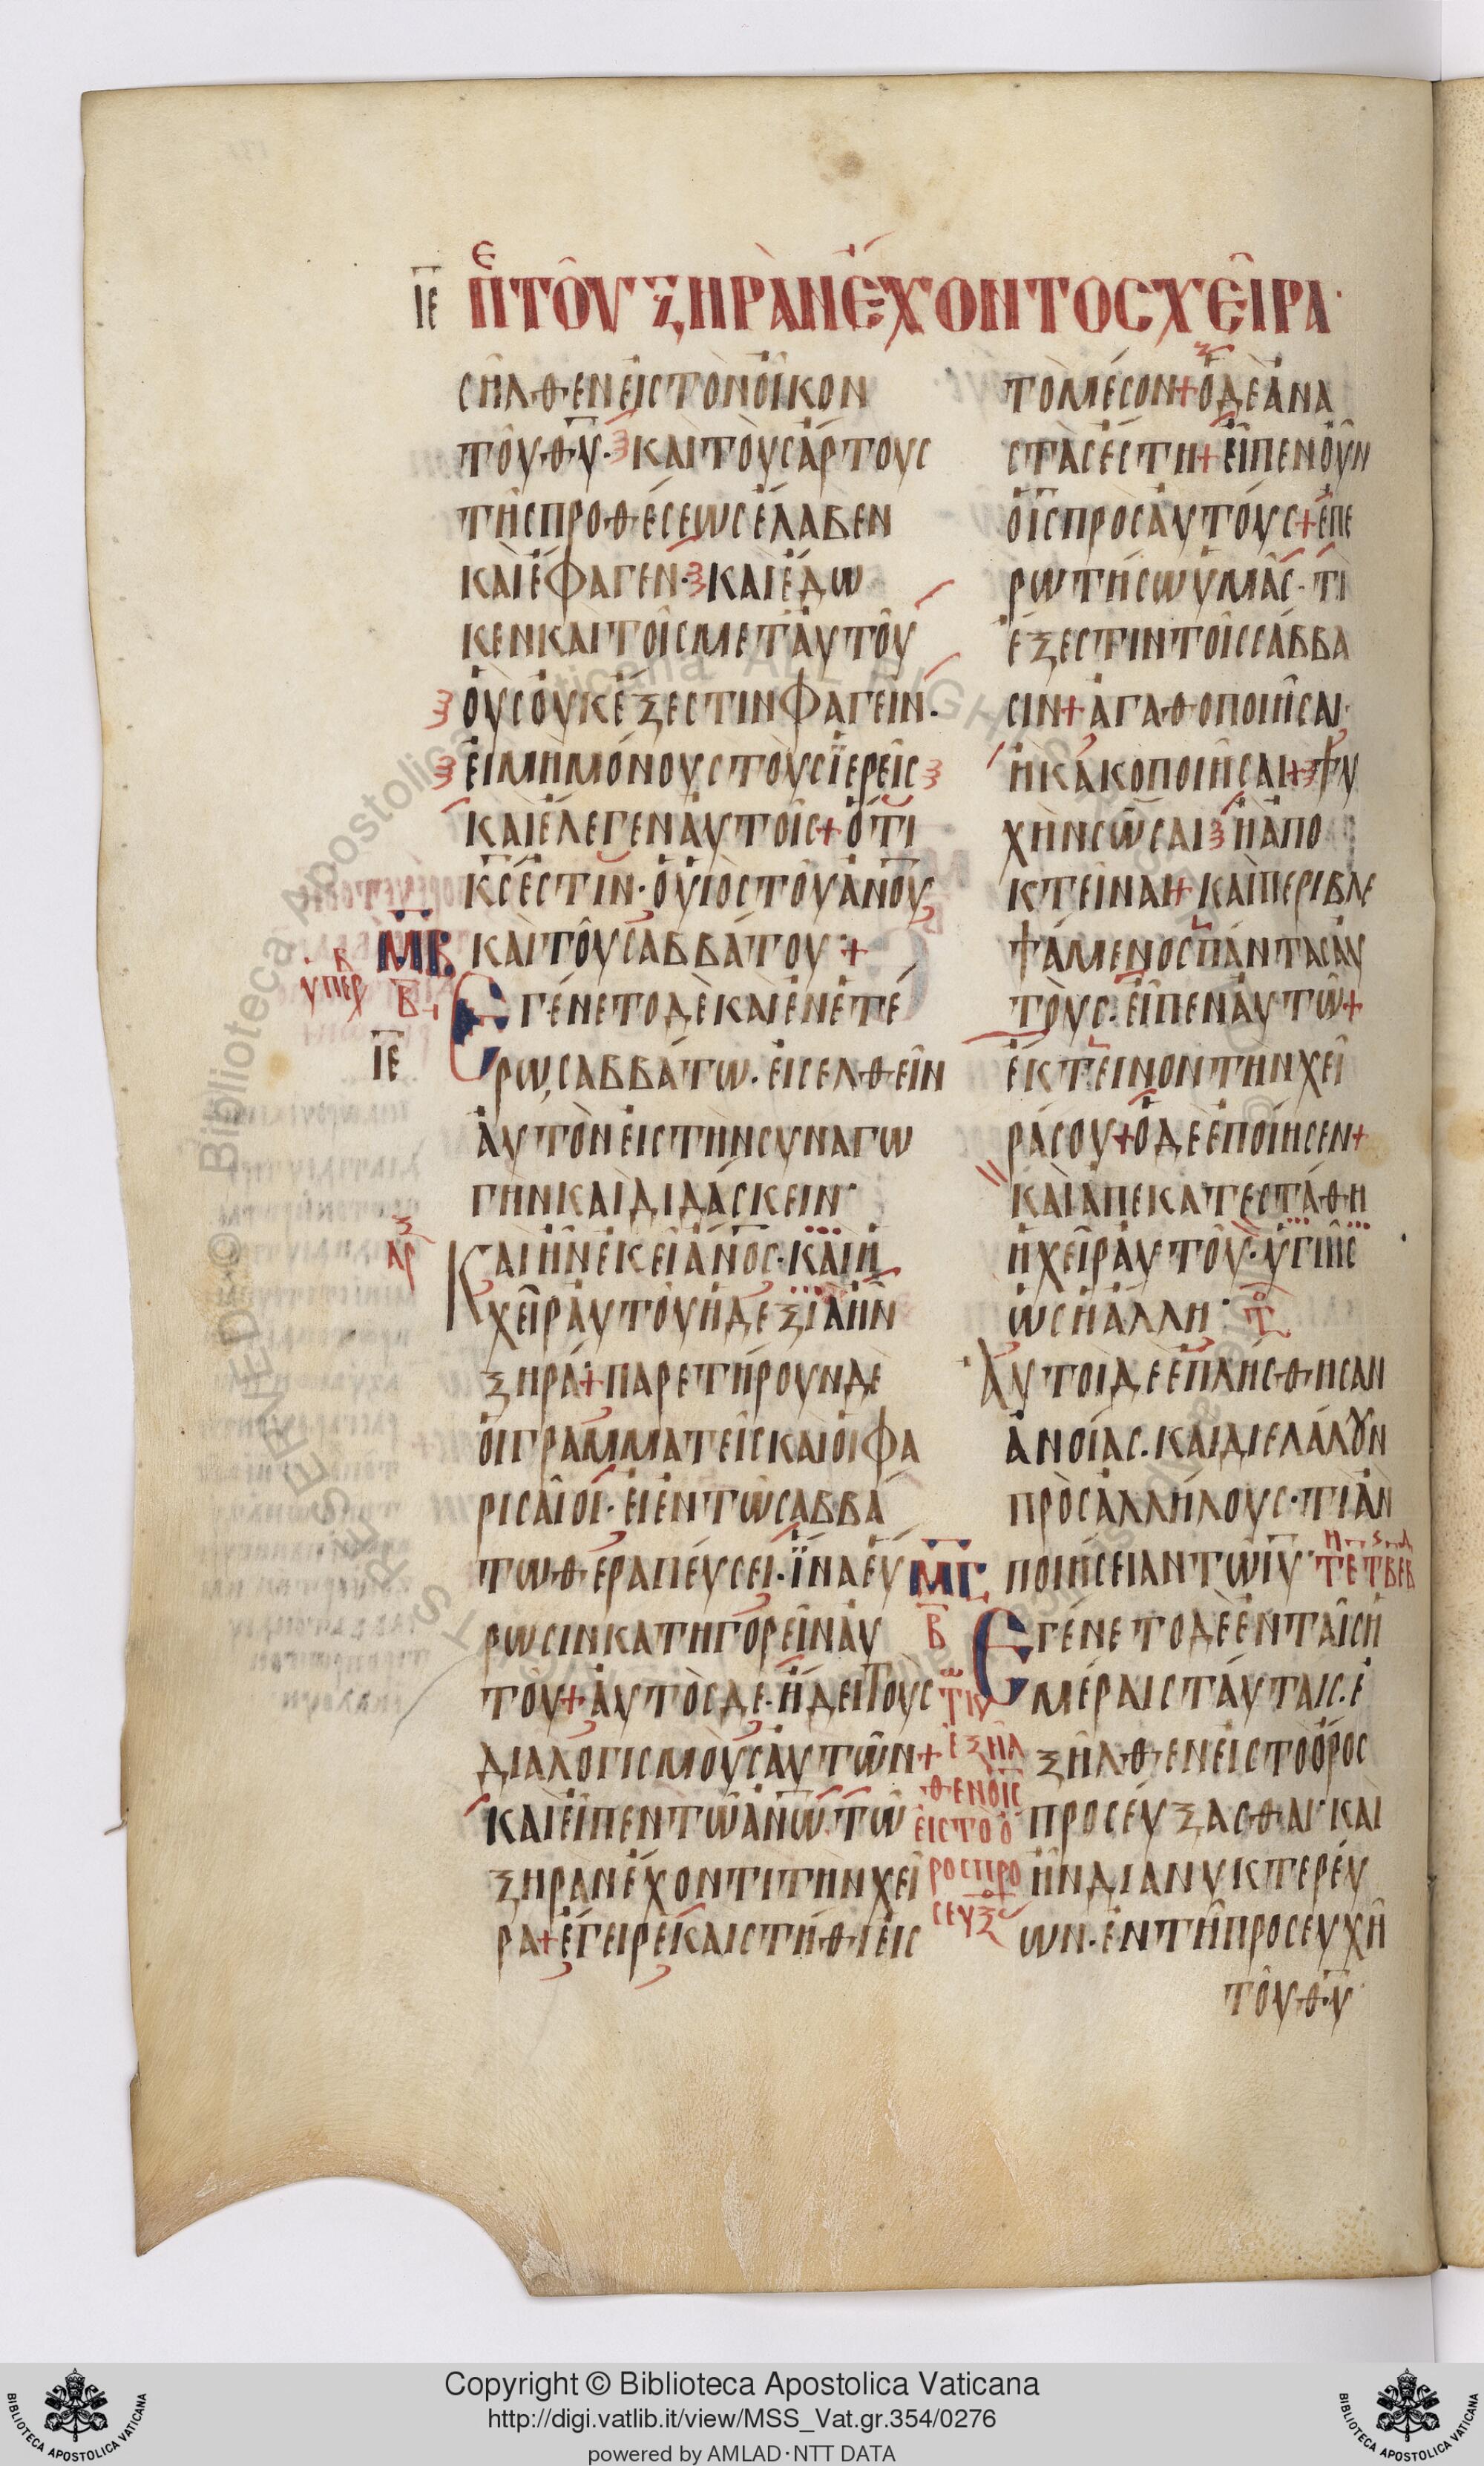 ΙΕ ΠΕ ΤΟΥ ΞΗΡΑΝ ΕΧΟΝΤΟΣ ΧΕΙΡΑ
ϹΗΛΘΕΝΕΙϹΤΟΝΟΙΚΟΝ
ΤΟΥΘΥ·ΚΑΙΤΟΥϹΑΡΤΟΥϹ
ΤΗϹΠΡΟΘΕϹΕωϹΕΛΑΒΕΝ
ΚΑΙΕΦΑΓΕΝ·ΚΑΙΕΔω
ΚΕΝΚΑΙΤΟΙϹΜΕΤΑΥΤΟΥ
ΟΥϹΟΥΚΕΞΕϹΤΙΝΦΑΓΕΙΝ·
ΕΙΜΗΜΟΝΟΥϹΤΟΥϹΪΕΡΕΙϹ
ΚΑΙΕΛΕΓΕΝΑΥΤΟΙϹ+ΟΤΙ
ΚϹΕϹΤΙΝ·ΟΥΙΟϹΤΟΥΑΝΟΥ
ΜΒ ΚΑΙΤΟΥϹΑΒΒΑΤΟΥ+
ΕΓΕΝΕΤΟΔΕΚΑΙΕΝΕΤΕ
ΙΕ
Ρω,ϹΑΒΒΑΤω·ΕΙϹΕΛΘΕΙΝ
ΑΥΤΟΝΕΙϹΤΗΝϹΥΝΑΓω
ΓΗΝΚΑΙΔΙΔΑϹΚΕΙΝ·
ΚΑΙΗΝΕΚΕΙΑΝΟϹ·ΚΑΙΗ
ΧΕΙΡΑΥΤΟΥΗΔΕΞΙΑΗΝ
ΞΗΡΑ+ΠΑΡΕΤΗΡΟΥΝΔΕ
ΟΙΓΡΑΜΜΑΤΕΙϹΚΑΙΟΙΦΑ
ΡΙϹΑΙΟΙ·ΕΙΕΝΤωϹΑΒΒΑ
ΤωΘΕΡΑΠΕΥϹΕΙ·ΪΝΑΕΥ
ΡωϹΙΝΚΑΤΗΓΟΡΕΙΝΑΥ
ΤΟΥ+ΑΥΤΟϹΔΕ·ΗΔΕΙΤΟΥϹ
ΔΙΑΛΟΓΙϹΜΟΥϹΑΥΤωΝ+
ΚΑΙΕΙΠΕΝΤωΑΝω·Τω
ΞΗΡΑΝΕΧΟΝΤΙΤΗΝΧΕΙ
ΡΑ+ΕΓΕΙΡΕΚΑΙϹΤΗΘΙΕΙϹ
ΤΟΜΕϹΟΝ+ΟΔΕΑΝΑ
ϹΤΑϹΕϹΤΗ+ΕΙΠΕΝΟΥΝ
ΟΙϹΠΡΟϹΑΥΤΟΥϹ+ΕΠΕ
ΡωΤΗϹωΥΜΑϹ·ΤΙ
ΕΞΕϹΤΙΝΤΟΙϹϹΑΒΒΑ
ϹΙΝ+ΑΓΑΘΟΠΟΙΗϹΑΙ·
ΗΚΑΚΟΠΟΙΗϹΑΙ+ΨΥ
ΧΗΝϹωϹΑΙΗΑΠΟ
ΚΤΕΙΝΑΙ+ΚΑΙΠΕΡΙΒΛΕ
ΨΑΜΕΝΟϹΠΑΝΤΑϹΑΥ
ΤΟΥϹ·ΕΙΠΕΝΑΥΤω+
ΕΚΤΕΙΝΟΝΤΗΝΧΕΙ
ΡΑϹΟΥ+ΟΔΕΕΠΟΙΗϹΕΝ+
ΚΑΙΑΠΕΚΑΤΕϹΤΑΘΗ
ΗΧΕΙΡΑΥΤΟΥ·ΥΓΙΗϹ
ωϹΗΑΛΛΗ·
ΑΥΤΟΙΔΕΕΠΛΗϹΘΗϹΑΝ
ΑΝΟΙΑϹ·ΚΑΙΔΙΕΛΑΛȢΝ
ΠΡΟϹΑΛΛΗΛΟΥϹ·ΤΙΑΝ
ΜΓ ΠΟΙΗϹΕΙΑΝΤωΙΥ·
Β ΕΓΕΝΕΤΟΔΕΕΝΤΑΙϹΗ
ΜΕΡΑΙϹΤΑΥΤΑΙϹ·Ε
ΞΗΛΘΕΝΕΙϹΤΟΟΡΟϹ
ΠΡΟϹΕΥΞΑϹΘΑΙ·ΚΑΙ
ΗΝΔΙΑΝΥΚΤΕΡΕΥ
ωΝ·ΕΝΤΗΠΡΟϹΕΥΧΗ
ΤΟΥΘΥ
ΕΞΗΛ
ΘΕΝΟΙϹ
ΕΙϹΤΟΟ
ΡΟϹΠΡΟ
ϹΕΥΞ
Copyright © Biblioteca Apostolica Vaticana
http://digi.vatlib.it/view/MSS_Vat.gr.354/0276
powered by AMLAD·NTT DATA
BIBLIOTECA APOSTOLICA VATICANA
BIBLIOTECA APOSTOLICA VATICANA